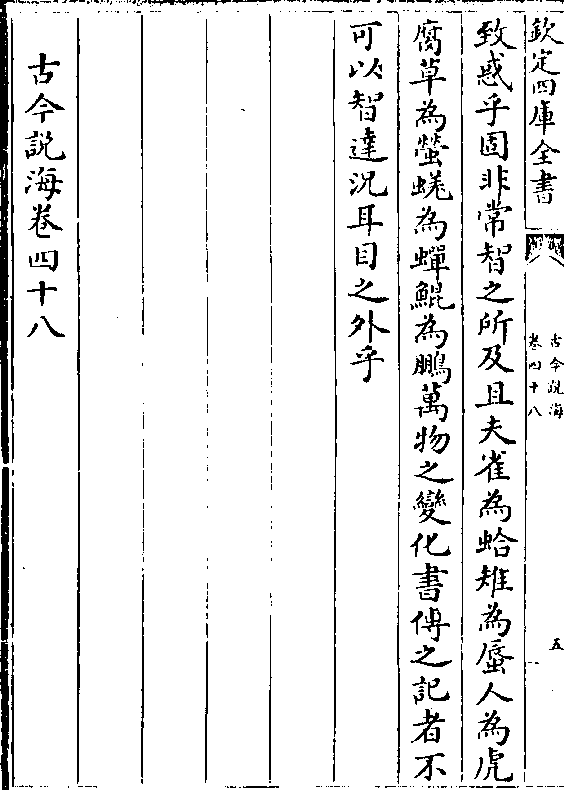 欽定四庫全書
古今説海
卷四十八
五
致惑乎固非常智之所及且夫雀為蛤雉為蜃人為虎
腐草為螢蜣為蟬鯤為鵬萬物之變化書傳之記者不
可以智達况耳目之外乎
古今説海卷四十八